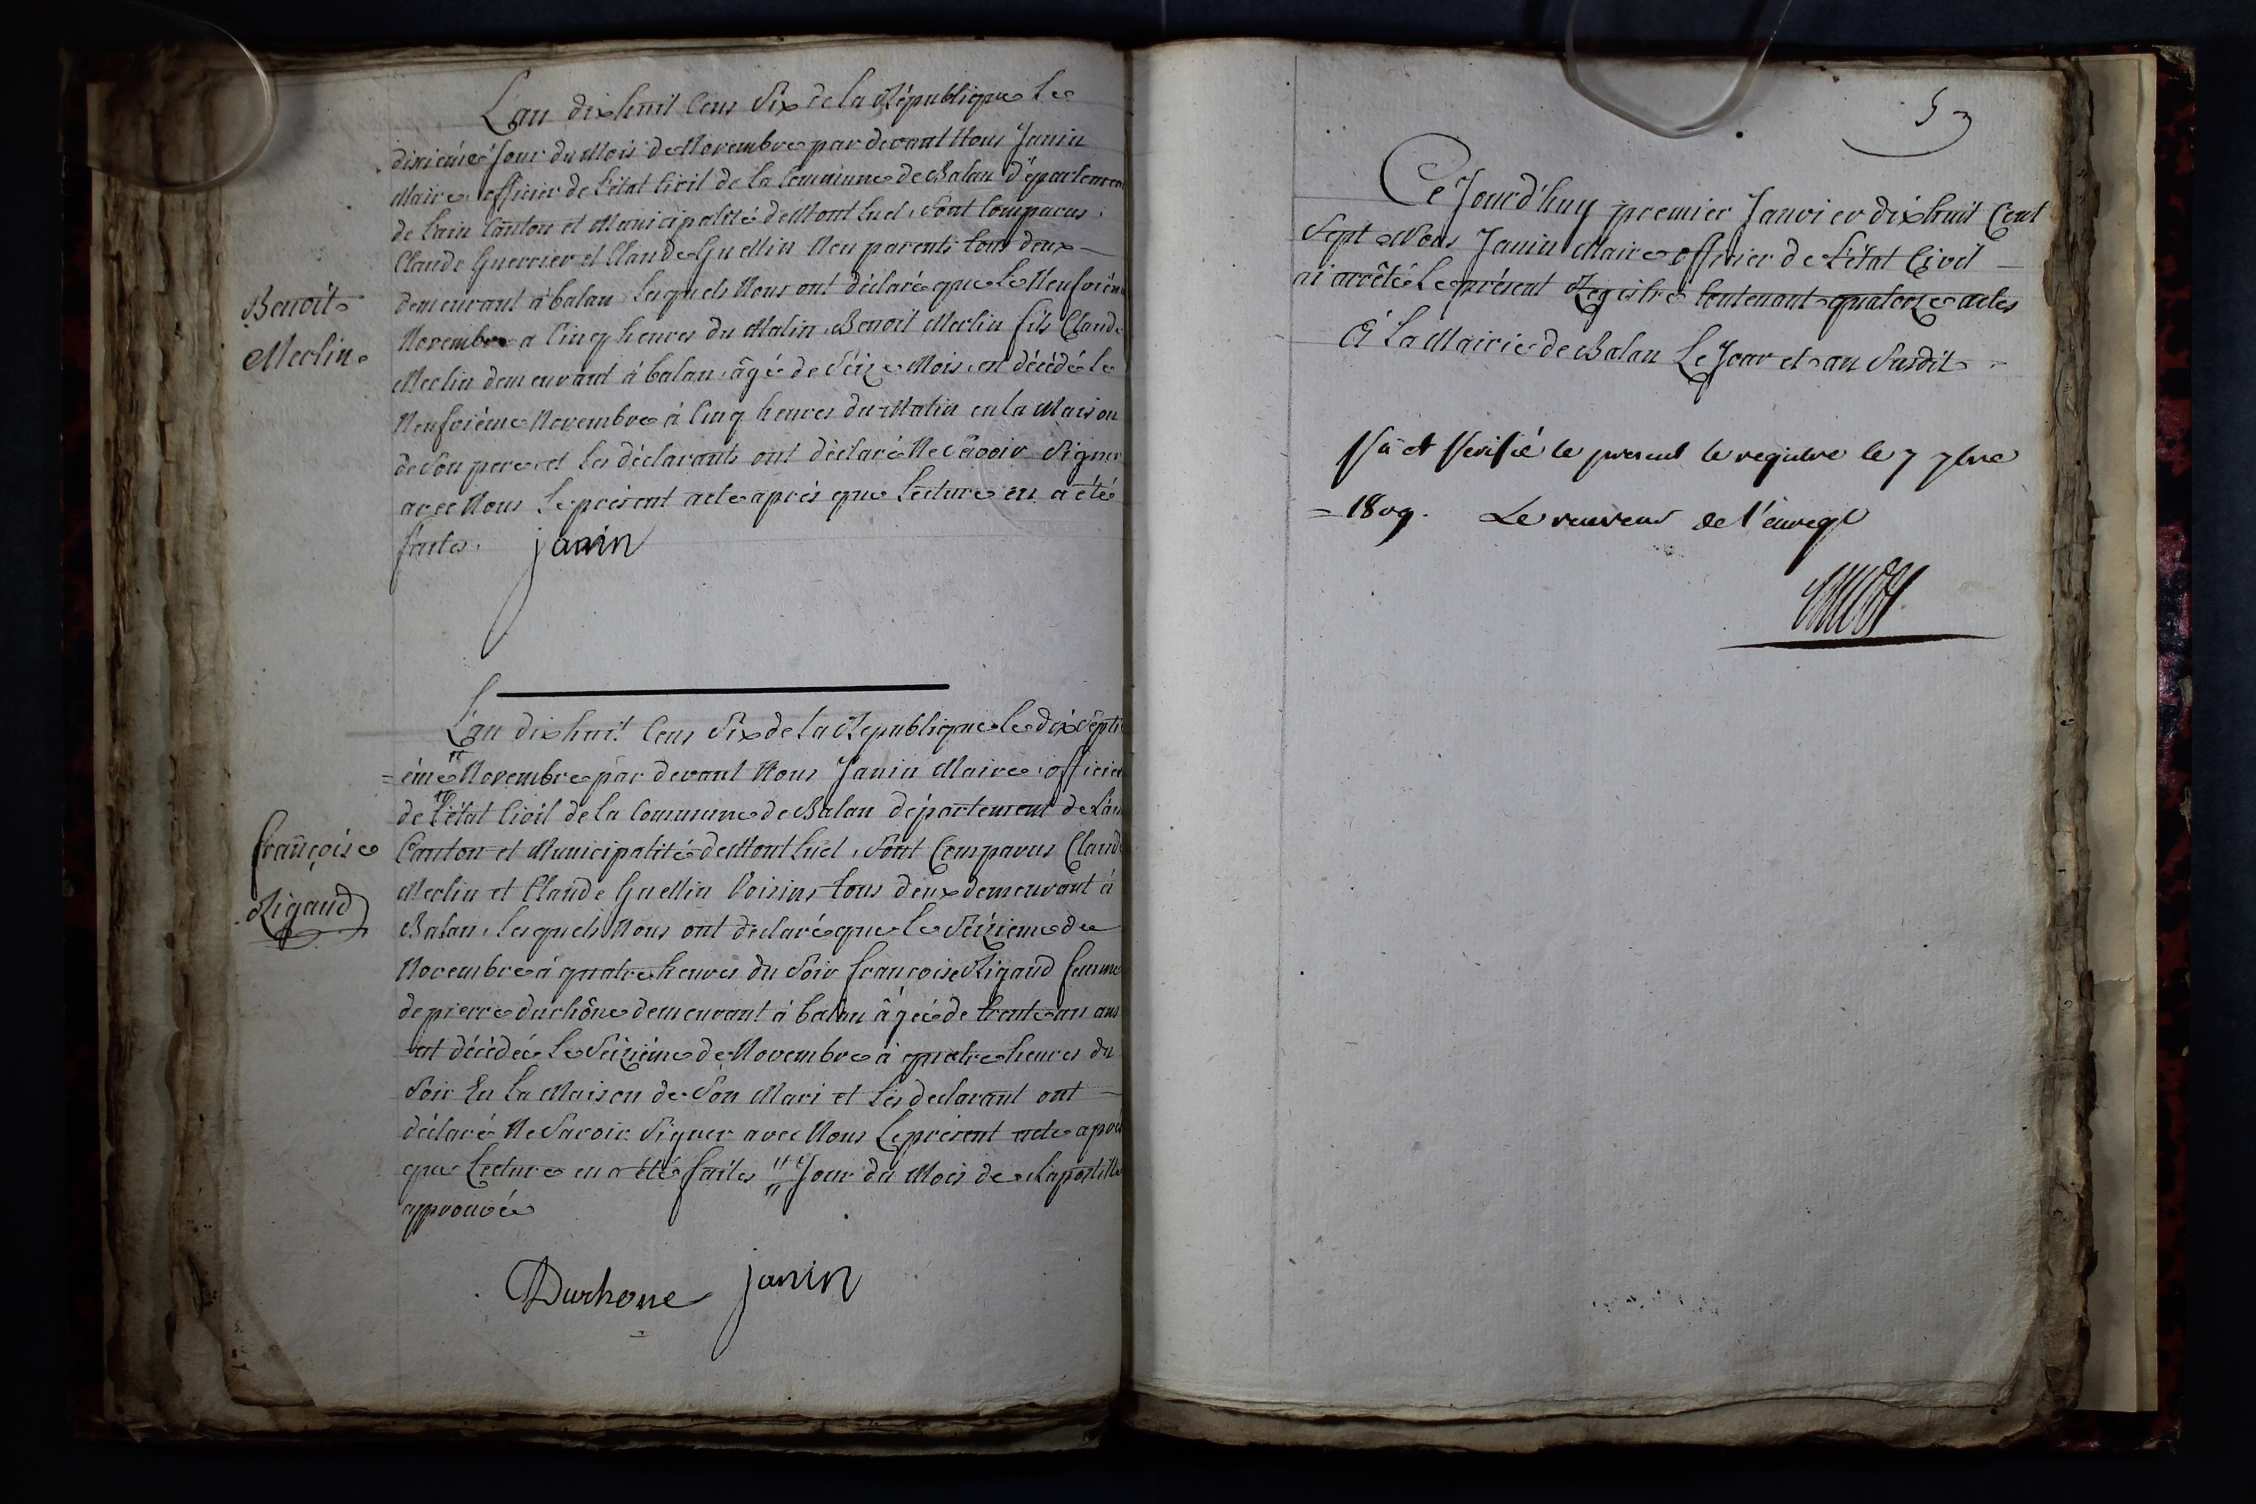 L'an dix huit Cens Six de la République le
dixiéme Jour du Mois de Novembre par devant Nous Janin
Maire officier de L'état Civil de la Commune de Balan Départemen
de Lain Canton et Municipalité de Mont Luel, Sont Comparus
Claude Guerrier et Claude Guellin Neu parents tous deux
demeurant à balan Lesquels Nous ont déclaré que le Neufvién
Benoit
Novembre a Cinq heures du Matin Benoit Merlin fils Claude
Merlin
Merlin demeurant à balan âgé de Seize Mois, est décédé le
Neufviéme Novembre à Cinq heures du Matin en la Maison
de Son pere et Les déclarants ont déclaré Ne Savoir Signer
avec Nous Le présent acte aprés que Lecture en a été
faites. janin
L'an dix huit Cens Six de la Republique le dix Septi
= éme " Novembre par devant Nous Janin Maire officier
de L'état Civil de la Commune de Balan département de Lain
françoise
Canton et Municipalité de Mont Luel, Sont Comparus Claude
Merlin et Claude Guellin Voisins tous deux demeurant à
Rigaud
Balan, Lesquels Nous ont déclaré que le Seizieme de
Novembre à quatre heures du Soir françoise Rigaud femme
de pierre durhône demeurant à balan âgée de trente un ans
est décédée le Seiziéme de Novembre à quatre heures du
Soir En La Maison de Son Mari et Les declarant ont
déclaré Ne Savoir Signer avec Nous Le présent acte aprés
que Lecture en a été faites " Jour du Mois de Lapostille
approuvée
Durhone janin
Ce Jourd'huy premier Janvier dix huit Cent
Sept Nous Janin Maire officier de L'état Civil
ai arrêté Le présent Registre Contenant quatorze actes
A La Mairie de Balan Le Jour et an Susdit
Vu et Verifié le present le registre le 7 7bre
= 1809. Le receveur de l'enregt